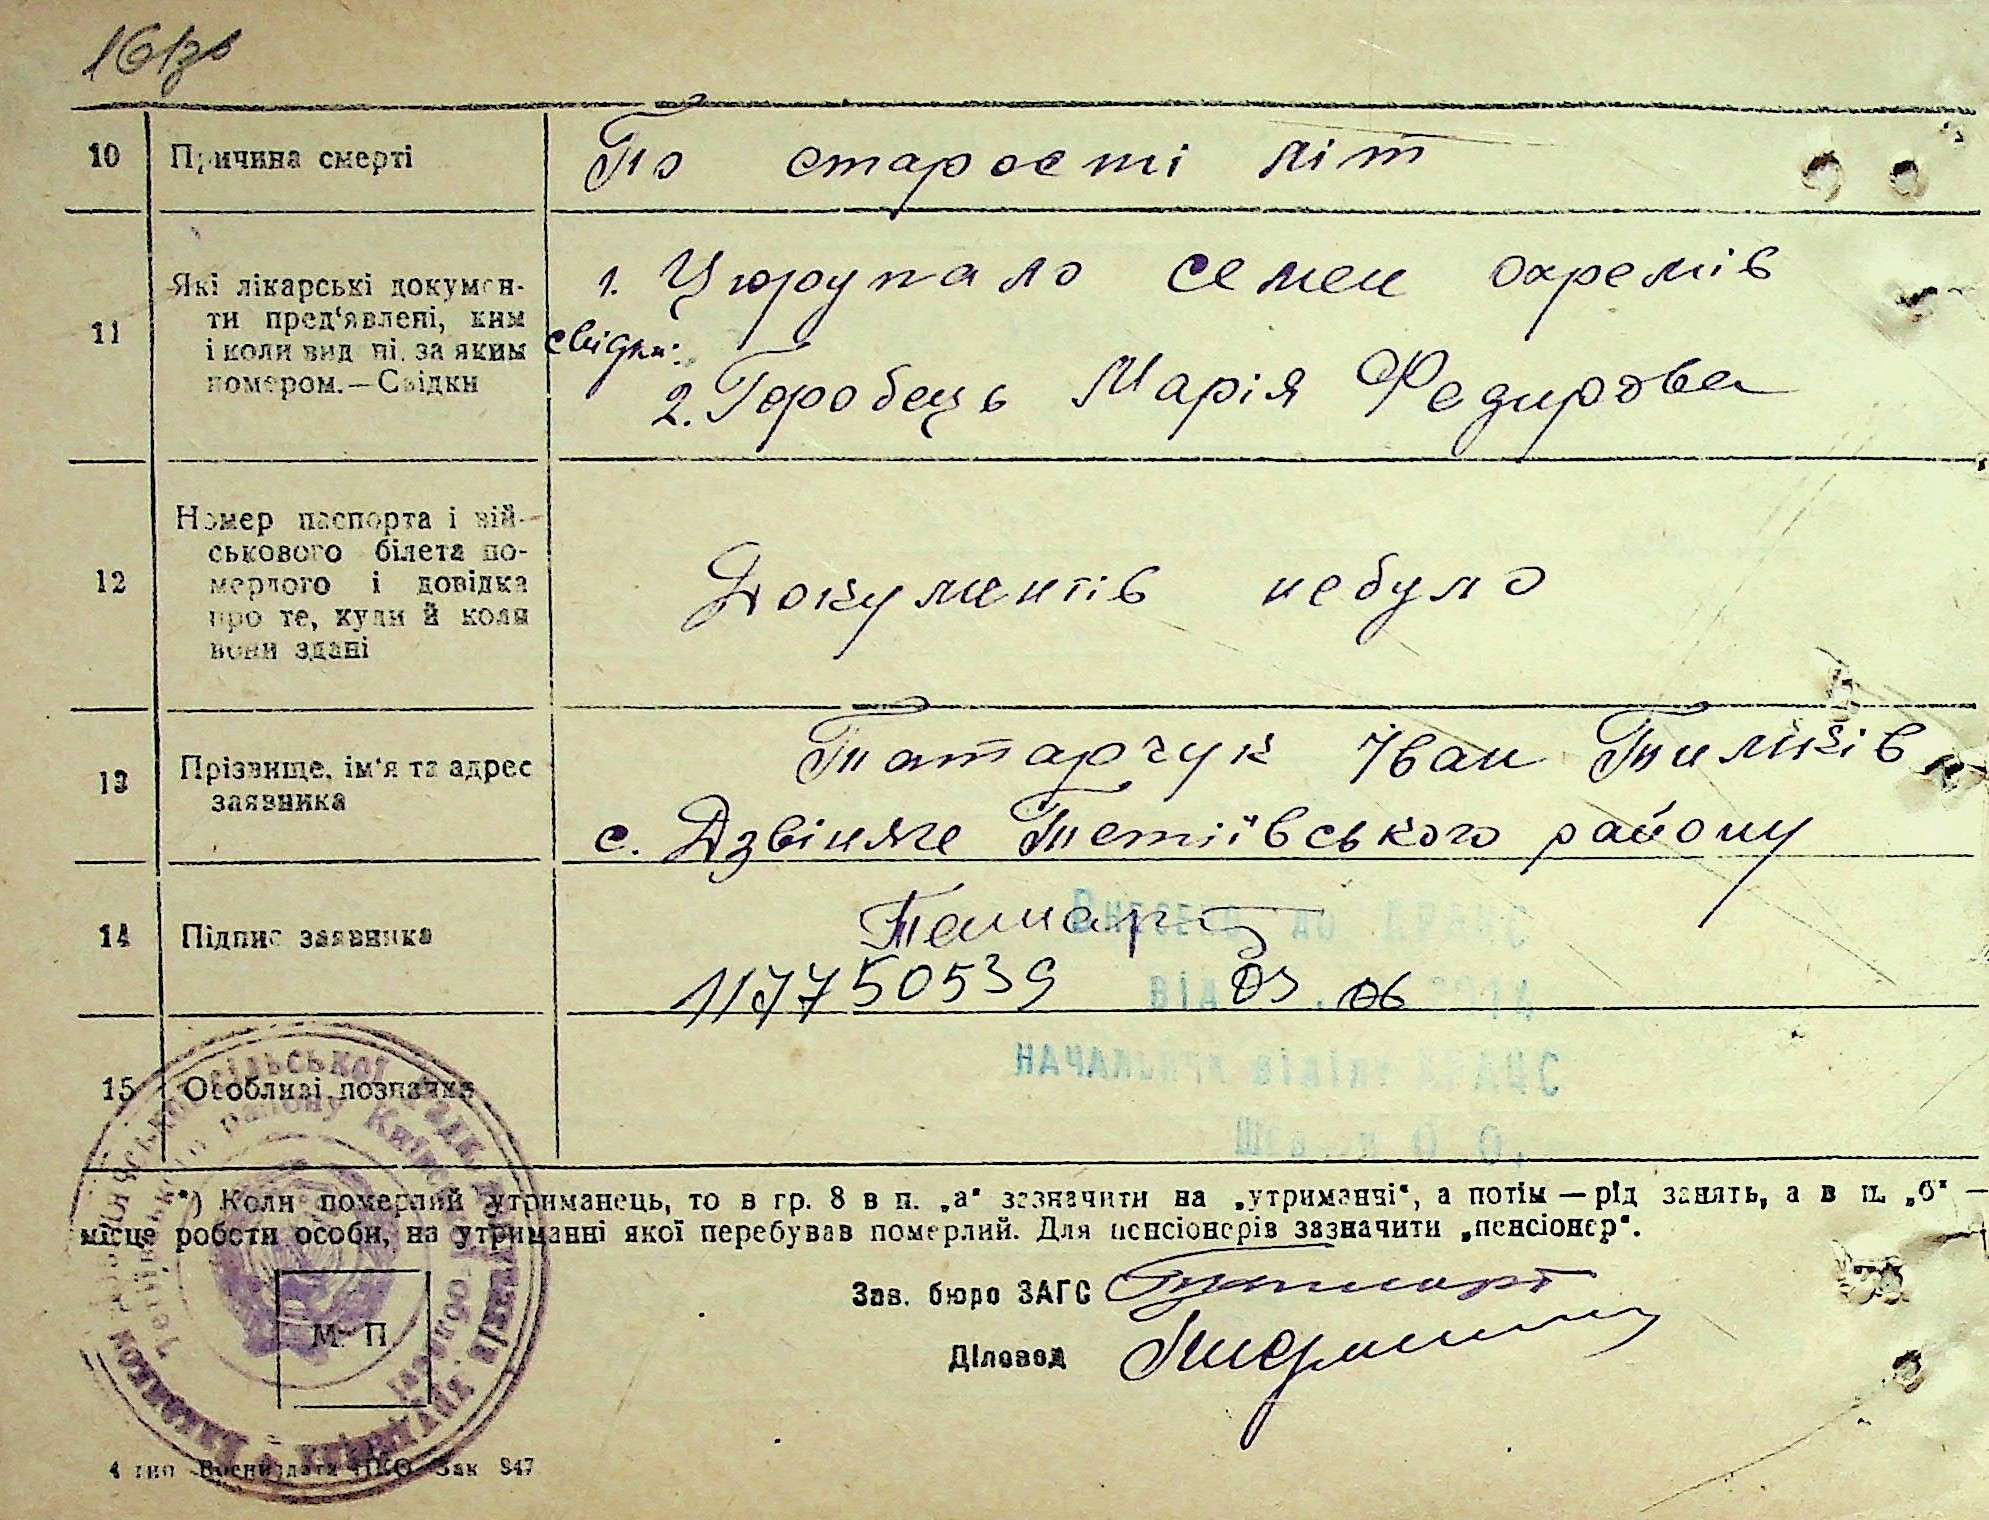 16 зв
10 Причина смерті По старості літ
11 Які лікарські докумен-
ти пред'явлені, ким
і коли видані, за яким
номером.—Свідки
1. Цюрупало Семен Охремів
свідки:
2. Горобець Марія Федирова
12 Номер паспорта і вій-
ськового білета по-
мерлого і довідка
про те, куди й коли
вони здані
Документів небуло
13 Прізвище, ім'я та адрес
заявника
Татарчук Іван
с. Дзвіняче Тетіївського району
14 Підпис заявника
117750539 03 06
15 Особливі позначки
*) Коли померлий утриманець, то в гр. 8 в п. „а" зазначити на „утриманні", а потім — рід занять, а в п. „б" —
місце роботи особи, на утриманні якої перебував померлий. Для пенсіонерів зазначити „пенсіонер".
Зав. бюро ЗАГС
Діловод
М. П
4 тип Воениздата НКО Зак 847